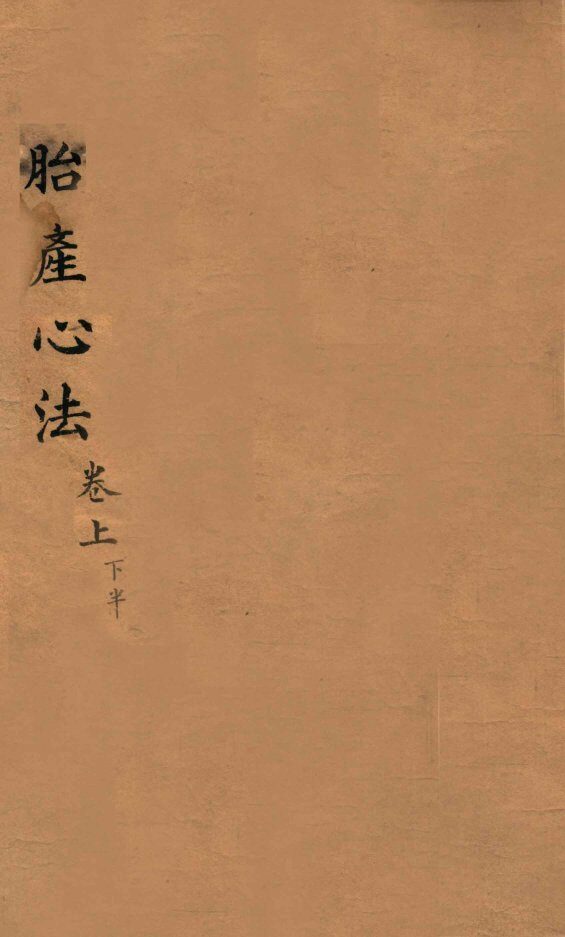 胎產心法
卷上
下半